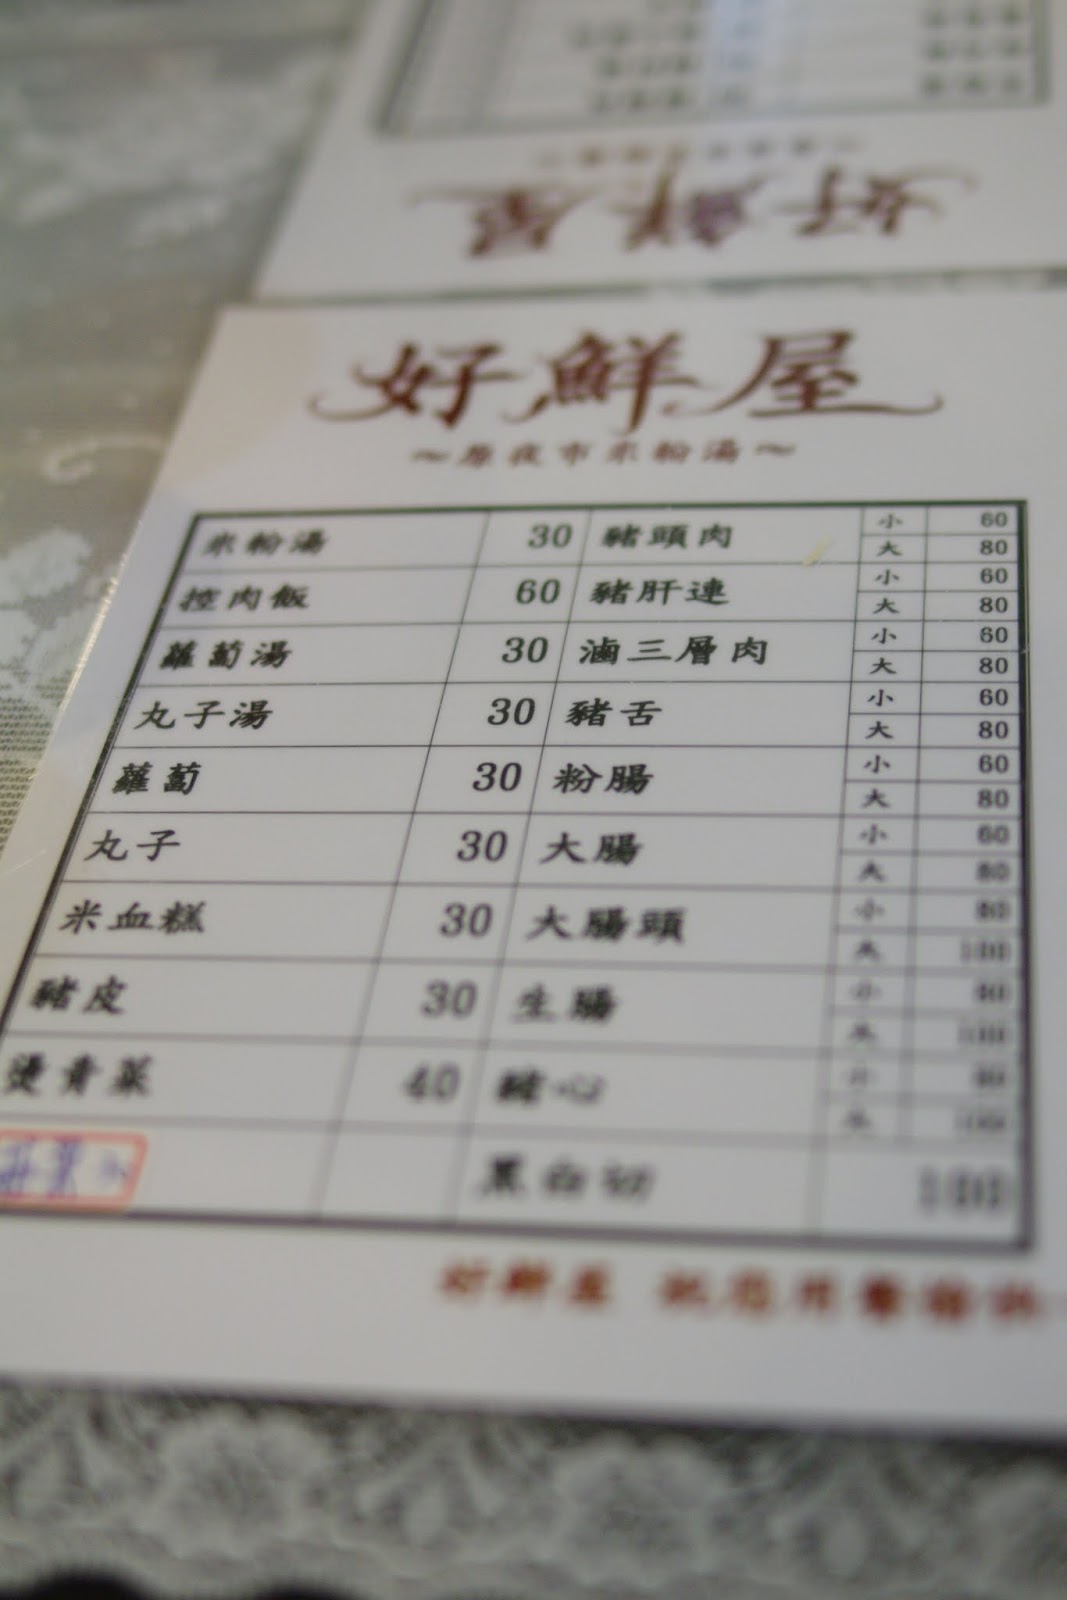 好鮮屋
好鮮屋
～原夜市米粉湯～
米粉湯 30 豬頭肉 小 60
大 80
控肉飯 60 豬肝連 小 60
大 80
蘿蔔湯 30 滷三層肉 小 60
大 80
丸子湯 30 豬舌 小 60
大 80
蘿蔔 30 粉腸 小 60
大 80
丸子 30 大腸 小 60
大 80
米血糕 30 大腸頭 小 80
大 100
豬皮 30 生腸 小 80
大 100
燙青菜 40 豬心 小 80
大 100
黑白切 100
好鮮屋 祝您用餐愉快